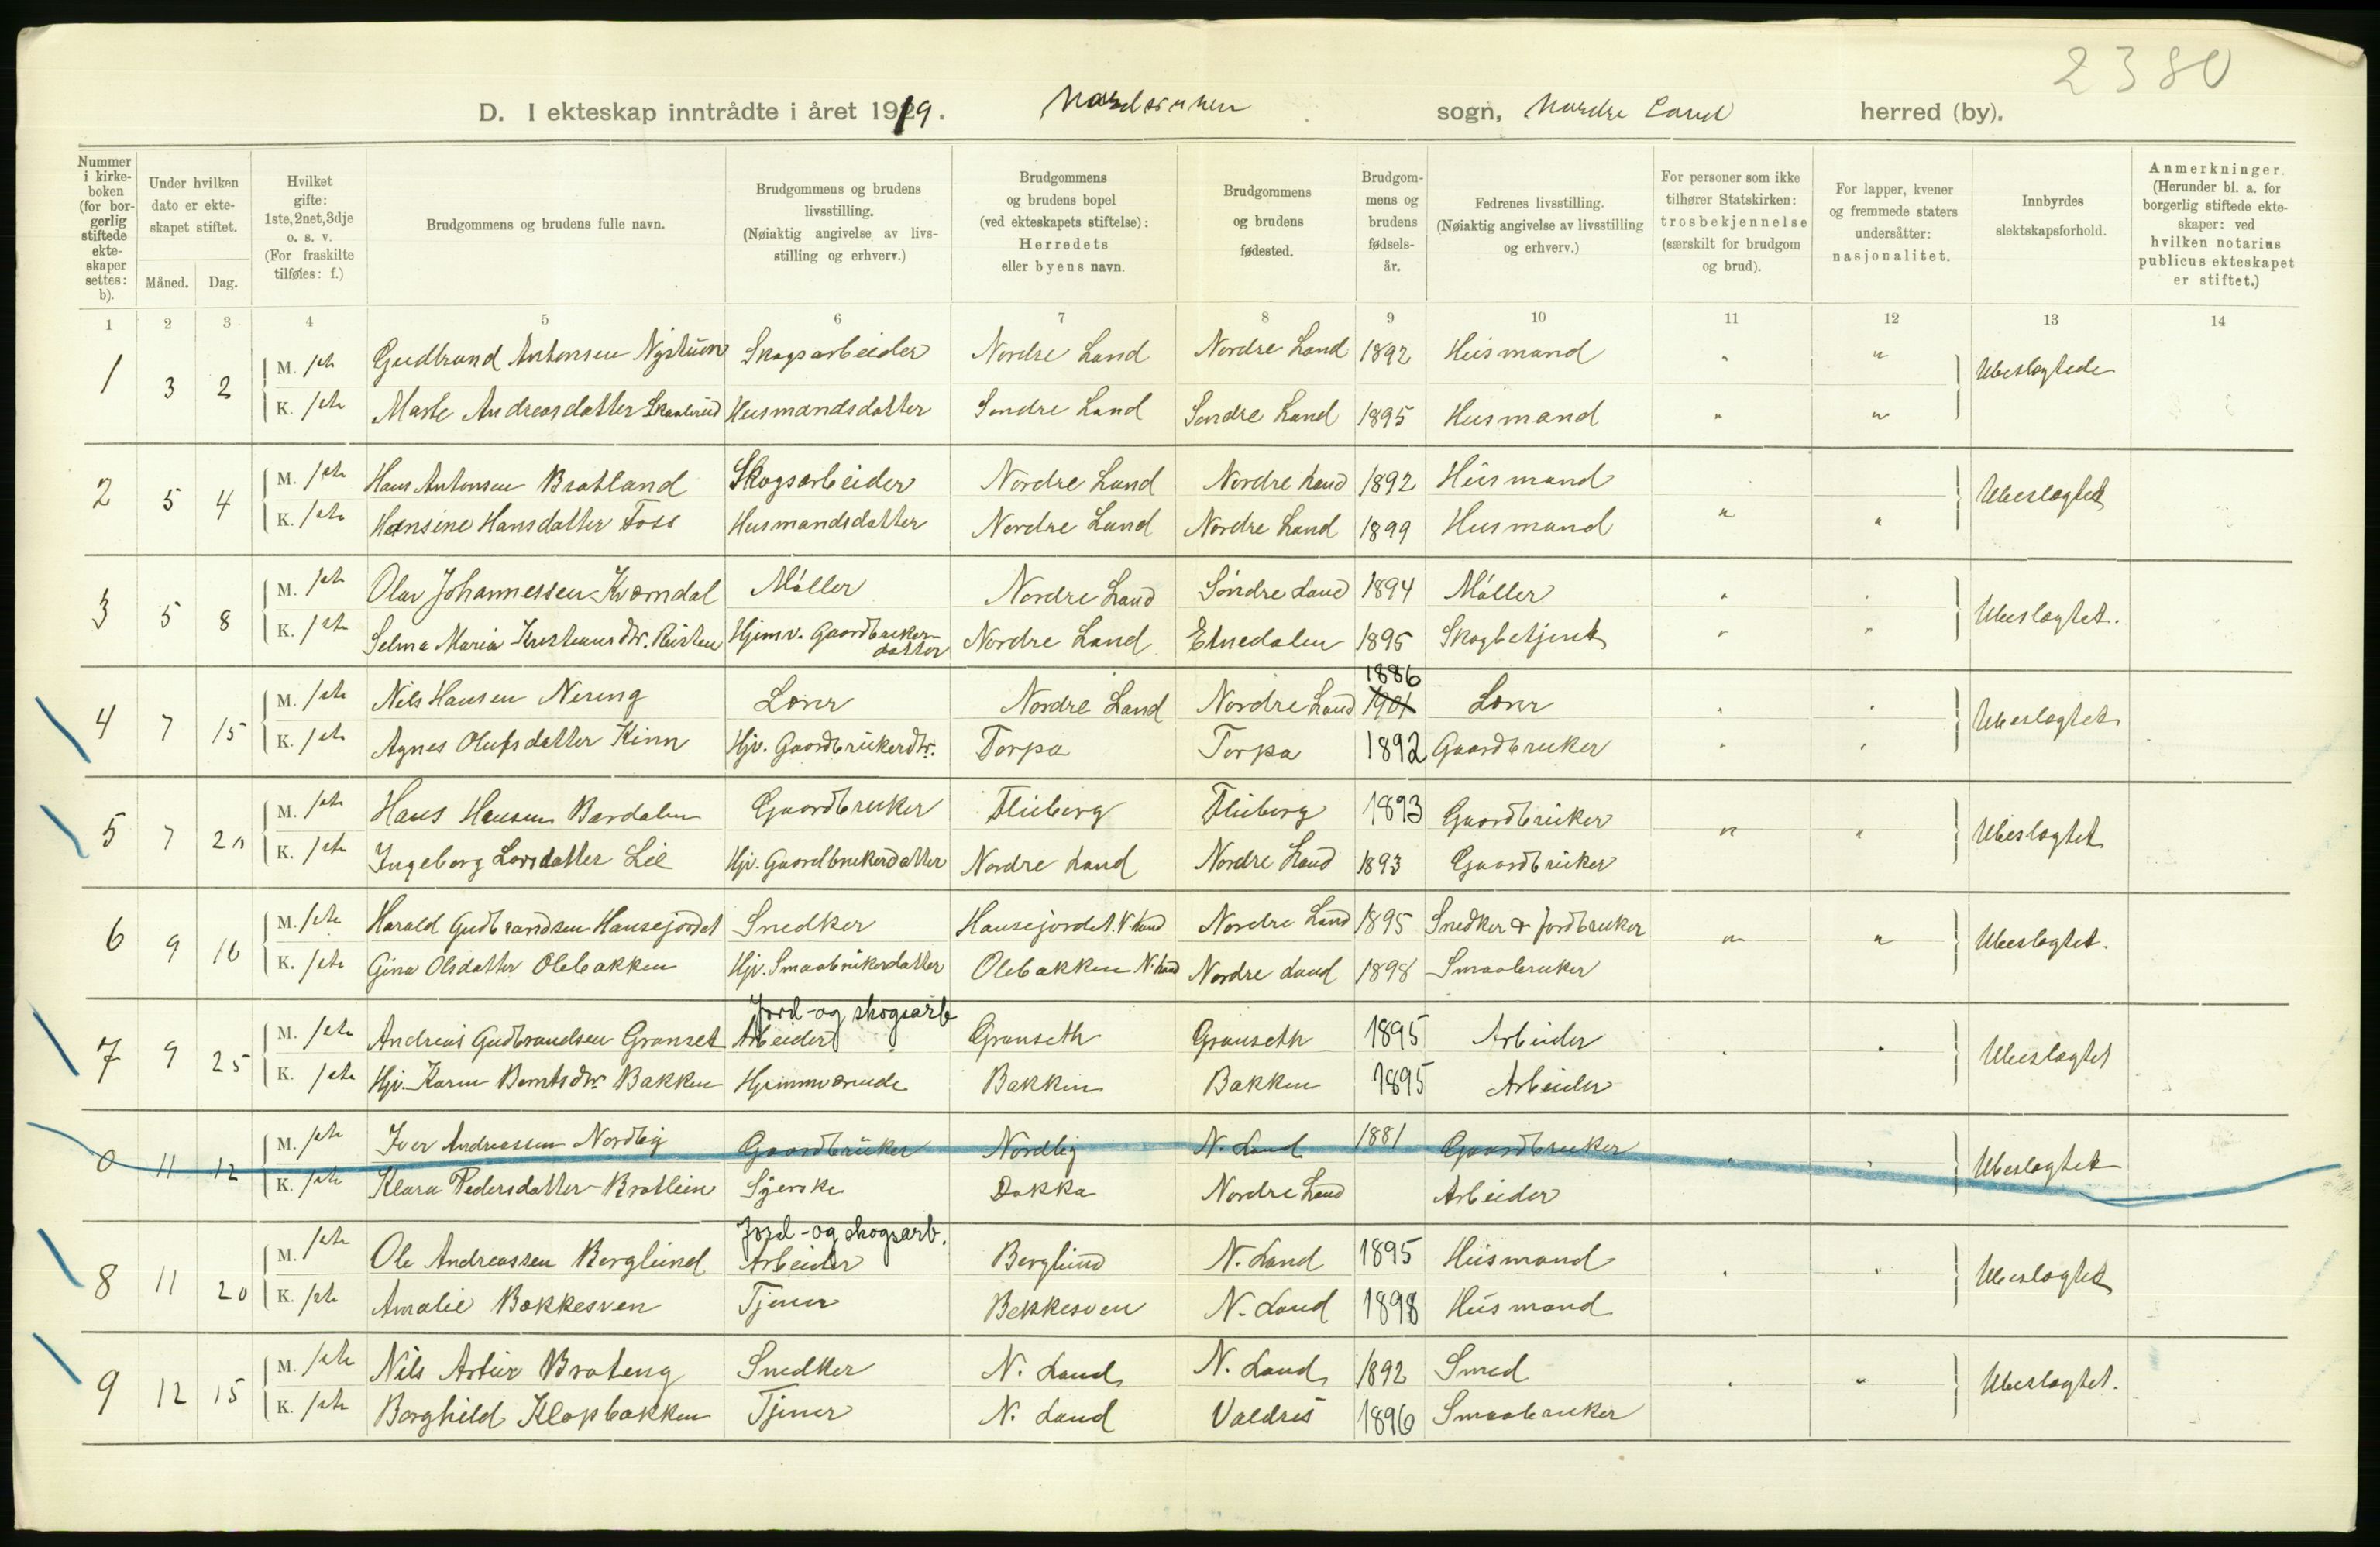 2380
D. I ekteskap inntrådte i året 1919. Nordsinnen sogn, Nordre Land herred (by).
Nummer i kirke-boken (for bor-gerlig stiftede ekte-skaper settes: b).
Under hvilken dato er ekte-skapet stiftet.
Måned. Dag.
Hvilket gifte: 1ste, 2net, 3dje o. s. v. (For fraskilte tilføies: f.)
Brudgommens og brudens fulle navn.
Brudgommens og brudens livsstilling. (Nøiaktig angivelse av livs-stilling og erhverv.)
Brudgommens og brudens bopel (ved ekteskapets stiftelse): Herredets eller byens navn.
Brudgommens og brudens fødested.
Brudgom-mens og brudens fødsels-år.
Fedrenes livsstilling. (Nøiaktig angivelse av livsstilling og erhverv.)
For personer som ikke tilhører Statskirken: trosbekjennelse (særskilt for brudgom og brud).
For lapper, kvener og fremmede staters undersåtter: nasjonalitet.
Innbyrdes slektskapsforhold.
Anmerkninger. (Herunder bl. a. for borgerlig stiftede ekte-skaper: ved hvilken notarius publicus ekteskapet er stiftet.)
1 2 3 4 5 6 7 8 9 10 11 12 13 14
1 3 2 M. 1ste Gudbrand Antonsen Nystuen Skogsarbeider Nordre Land Nordre Land 1892 Husmand " " Ubeslægtede
K. 1ste Marte Andreasdatter Skaalerud Husmandsdatter Søndre Land Søndre Land 1895 Husmand " "
2 5 4 M. 1ste Hans Antonsen Bratland Skogsarbeider Nordre Land Nordre Land 1892 Husmand Ubeslægtet
K. 1ste Hansine Hansdatter Foss Husmandsdatter Nordre Land Nordre Land 1899 Husmand " "
3 5 8 M. 1ste Olav Johannessen Kværndal Møller Nordre Land Søndre Land 1894 Møller " " Ubeslægtet.
K. 1ste Selma Maria Kristiansdtr. Hjemv. Gaardbruker-datter Nordre Land Etnedalen 1895 Skogbetjent " "
4 7 15 M. 1ste Nils Hansen Nereng Lærer Nordre Land Nordre Land 1901 1886 Lærer " " Ubeslægtet
K. 1ste Agnes Olufsdatter Kinn Hjv. Gaardbrukerdtr. Torpa Torpa 1892 Gaardbruker " "
5 7 20 M. 1ste Hans Hansen Bardalen Gaardbruker Fluberg Fluberg 1893 Gaardbruker " " Ubeslægtet
K. 1ste Ingeborg Larsdatter Lie Hjv. Gaardbrukerdatter Nordre Land Nordre Land 1893 Gaardbruker
6 9 16 M. 1ste Harald Gudbrandsen Hansejordet Snedker Hansejordet. N. Land Nordre Land 1895 Snedker & Jordbruker " " Ubeslægtet.
K. 1ste Gina Olsdatter Olebakken Hjv. Smaabrukerdatter Olebakken N. Land Nordre Land 1898 Smaabruker
Jord-og skogsarb
7 9 25 M. 1ste Andreas Gudbrandsen Granset Arbeider Granseth Granseth 1895 Arbeider " " Ubeslægtet
K. 1ste Hjv. Karen Berntsdtr. Bakken Hjemmværende Bakken Bakken 1895 Arbeider
0 11 12 M. 1ste Iver Andreassen Nordby Gaardbruker Nordby N. Land 1881 Gaardbruker " " Ubeslægtet
K. 1ste Klara Pedersdatter Bratlien Syerske Dokka Nordre Land Arbeider
Jord-og skogsarb.
8 11 20 M. 1ste Ole Andreassen Berglund Arbeider Berglund N. Land 1895 Husmand " " Ubeslægtet
K. 1ste Amalie Bækkesven Tjener Bekkesven N. Land 1898 Husmand
9 12 15 M. 1ste Nils Artur Brateng Snedker N. Land N. Land 1892 Smed " " Ubeslægtet.
K. 1ste Borghild Klopbakken Tjener N. Land Valdres 1896 Smaabruker